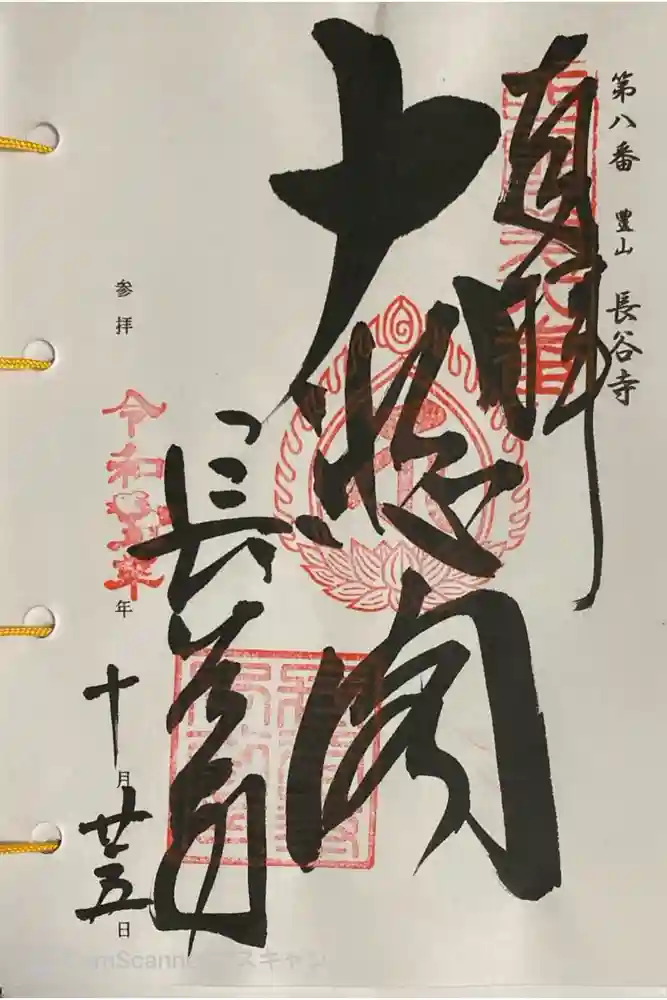 第八番 豐山 長谷寺
奉拝
大悲閣
長谷寺
参拝 令和 年 十月廿五日
CamScannerでスキャン